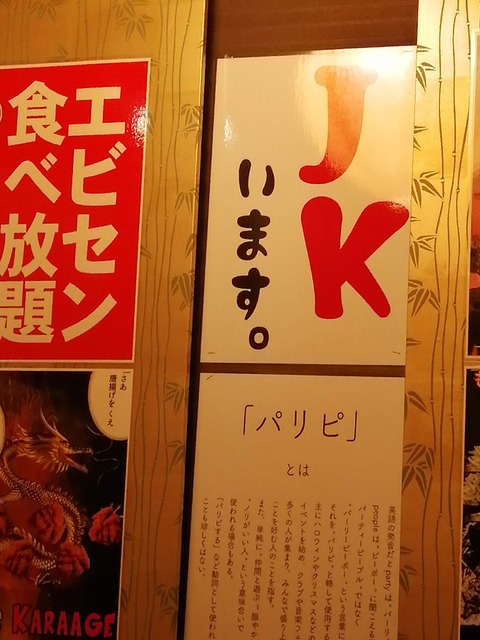 エビセン
食べ放題
JK
います。
さあ
唐揚げをくえ
KARAAGE
「パリピ」
とは
英語の発音だとpartyは、パーリー
peopleは、ピーポー、に聞こえ
パーティーピープル、ではなく
パーリーピーポー、という言葉
それを、パリピ、と略して使用する
主にハロウィンやクリスマスなど
イベントを始め、クラブや音楽フ
多くの人が集まり、みんなで盛り
ことを好む人のことを指す。
また、単純に、仲間と遊ぶ・賑やか
ノリがいい人、という意味合いで
使われる場合もある。
「パリピする」など動詞として使われ
ことも珍しくはない。